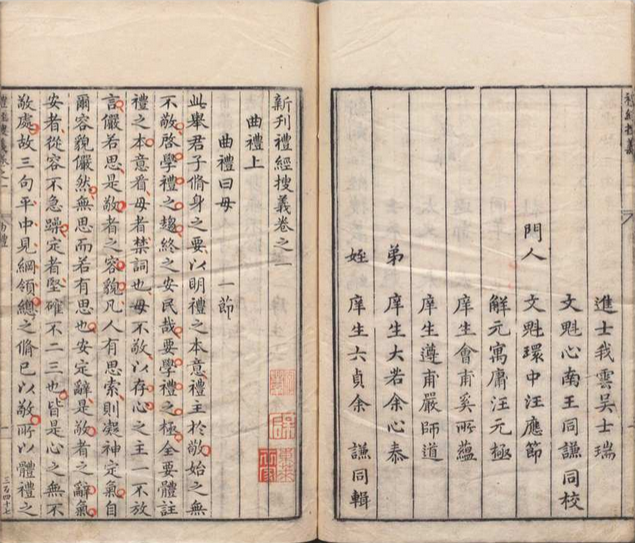 進士我雲吳士瑞
文魁心南王同謙同校
門人
文魁環中汪應節
解元寓庸汪元極
庠生會甫奚所蘊
庠生遵甫嚴師道
弟 庠生大若余心泰
姪 庠生六貞余謙同輯
新刊禮經搜義卷之一
曲禮上
曲禮曰毋 一節
此舉君子脩身之要以明禮之本意禮主於敬始之無
不敬啓學禮之趨終之安民哉要學禮之極全要體註
禮之本意看毋者禁詞也毋不敬以存心之主一不放
言儼若思是敬者之容貌凡人有思索則凝神定氣自
爾容貌儼然無思而若有思也安定辭是敬者之辭氣
安者從容不急躁定者堅確不二三也皆是心之無不
敬處故三句平中見綱領總之脩已以敬所以體禮之